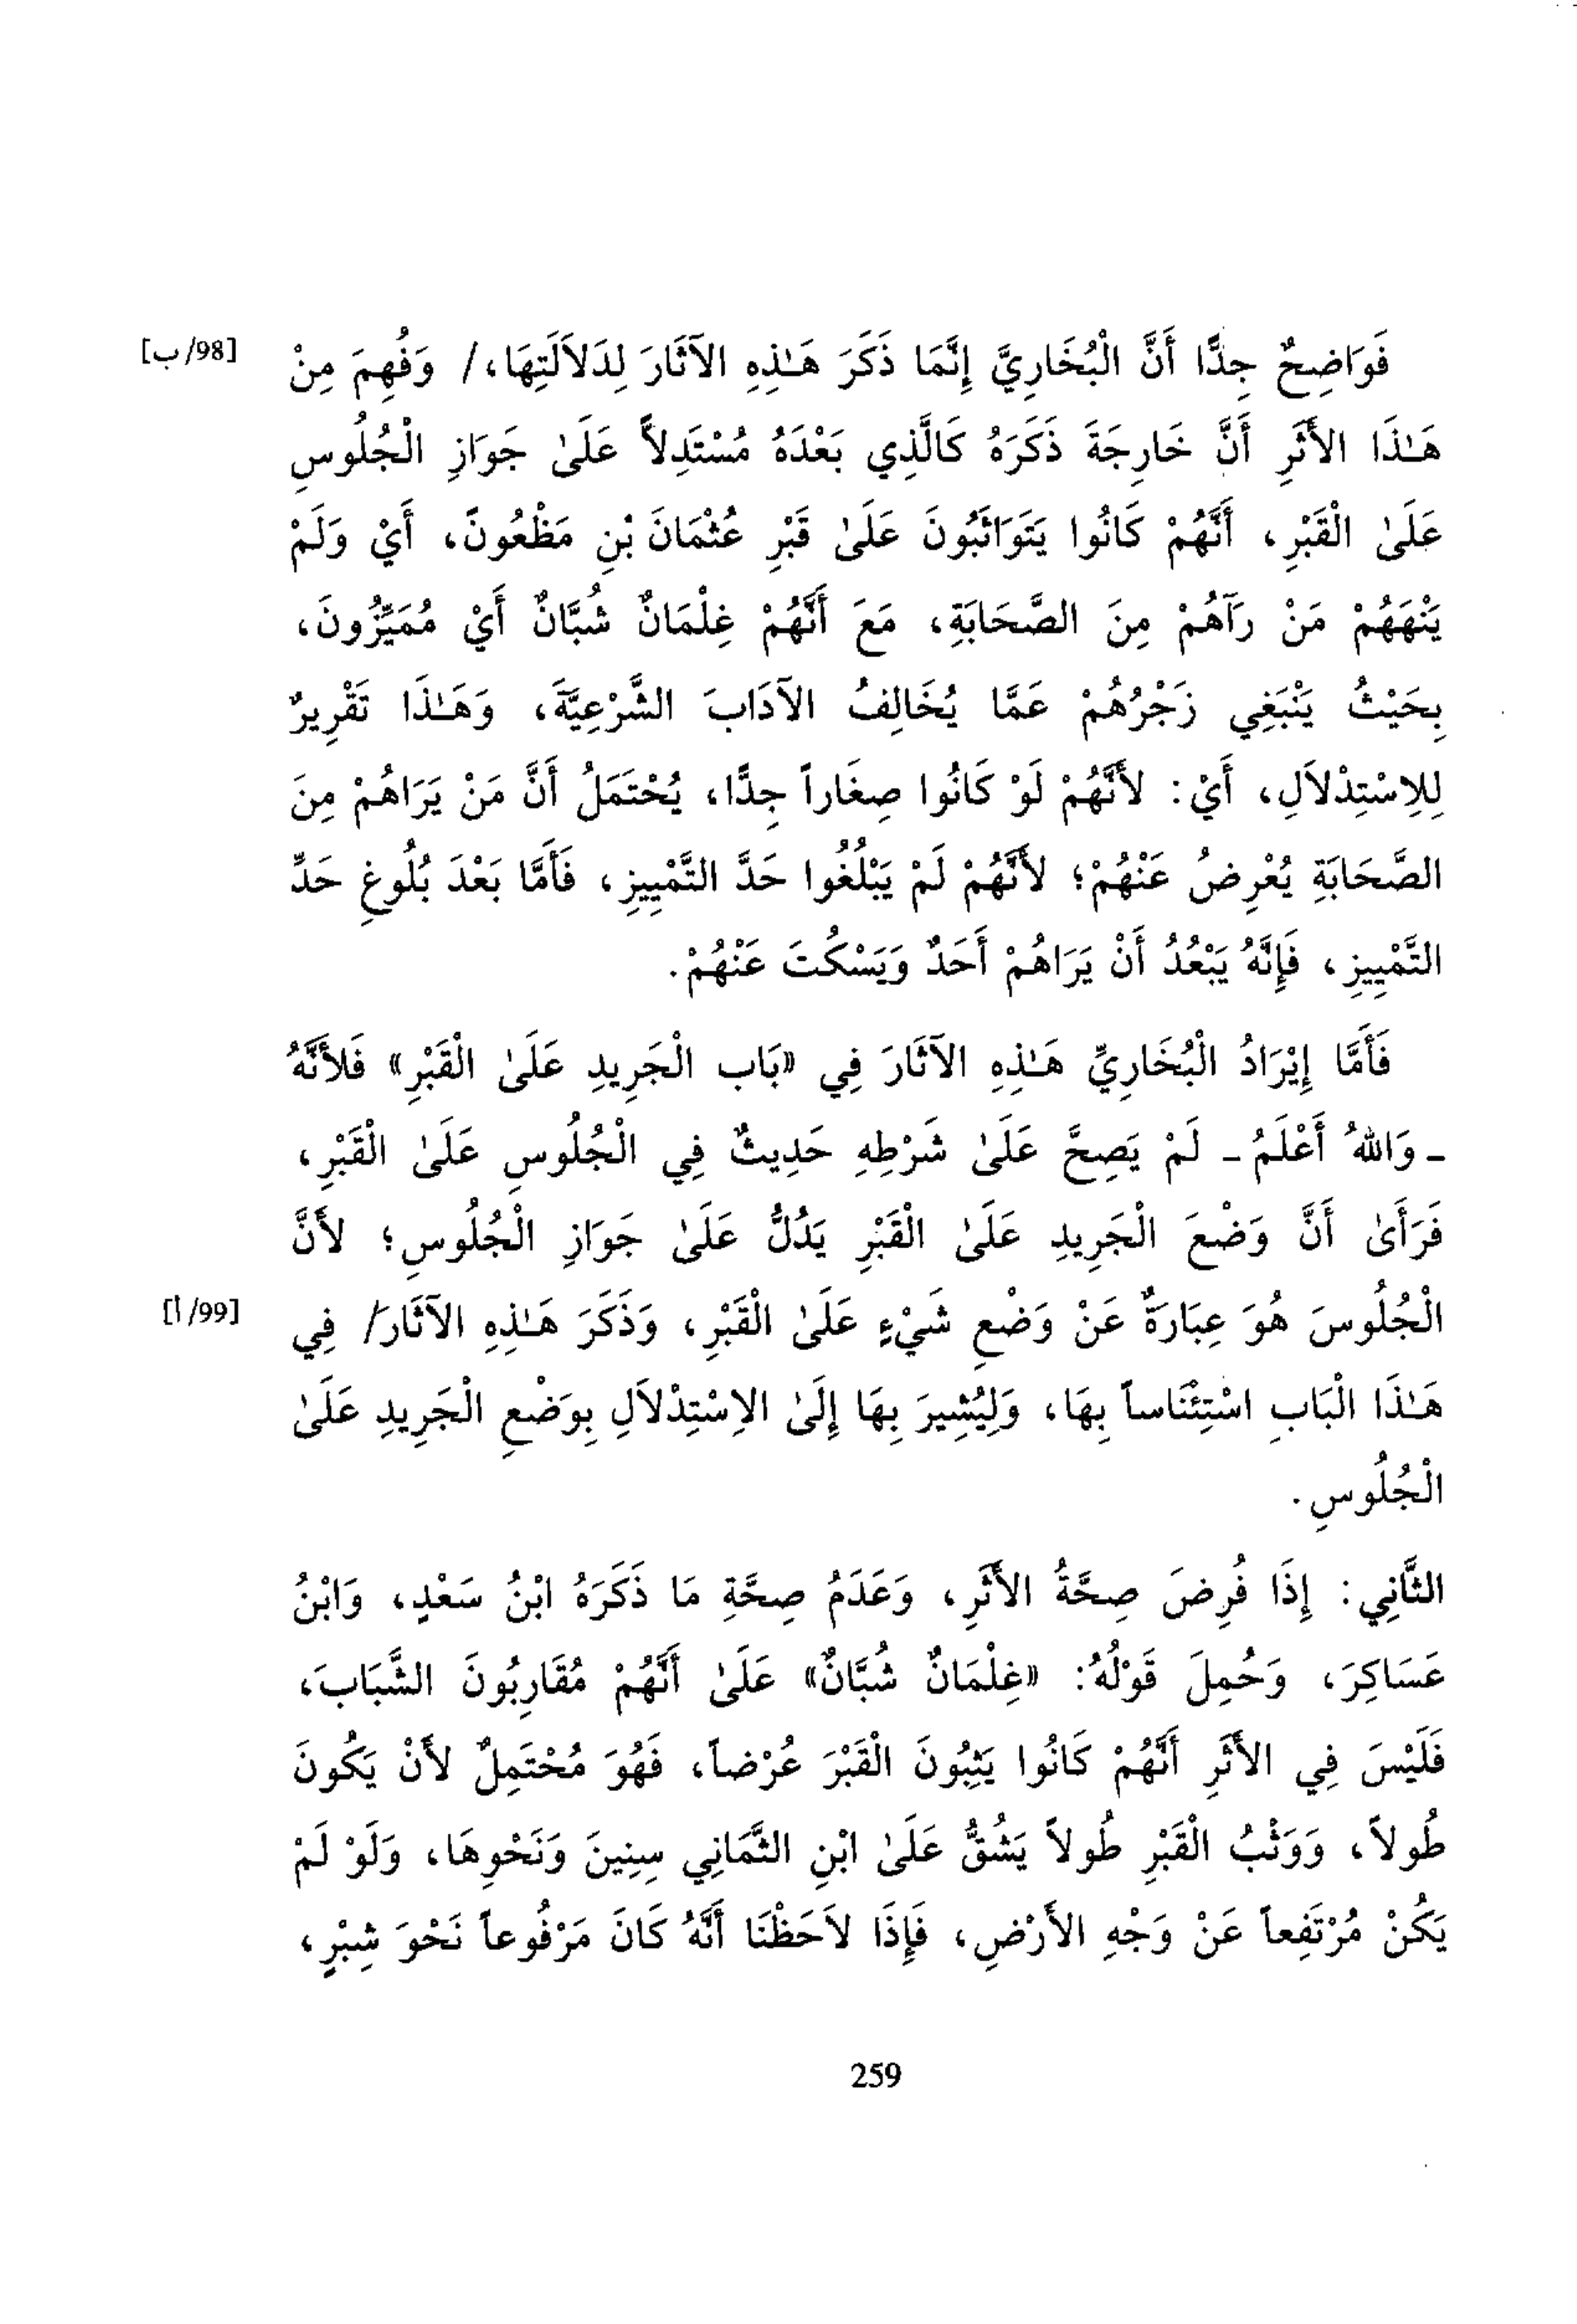 فَوَاضِحٌ جِدًّا أَنَّ الْبُخَارِيَّ إِنَّمَا ذَكَرَ هَـٰذِهِ الآثَارَ لِدَلاَلَتِهَا، / وَفُهِمَ مِنْ [98/ب]
هَـٰذَا الأَثَرِ أَنَّ خَارِجَةَ ذَكَرَهُ كَالَّذِي بَعْدَهُ مُسْتَدِلاًّ عَلَىٰ جَوَازِ الْجُلُوسِ
عَلَىٰ الْقَبْرِ، أَنَّهُمْ كَانُوا يَتَوَاثَبُونَ عَلَىٰ قَبْرِ عُثْمَانَ بْنِ مَظْعُونَ، أَيْ وَلَمْ
يَنْهَهُمْ مَنْ رَآهُمْ مِنَ الصَّحَابَةِ، مَعَ أَنَّهُمْ غِلْمَانٌ شُبَّانٌ أَيْ مُمَيِّزُونَ،
بِحَيْثُ يَنْبَغِي زَجْرُهُمْ عَمَّا يُخَالِفُ الآدَابَ الشَّرْعِيَّةَ، وَهَـٰذَا تَقْرِيرٌ
لِلِاسْتِدْلاَلِ، أَيْ: لأَنَّهُمْ لَوْ كَانُوا صِغَاراً جِدًّا، يُحْتَمَلُ أَنَّ مَنْ يَرَاهُمْ مِنَ
الصَّحَابَةِ يُعْرِضُ عَنْهُمْ؛ لأَنَّهُمْ لَمْ يَبْلُغُوا حَدَّ التَّمْيِيزِ، فَأَمَّا بَعْدَ بُلُوغِ حَدِّ
التَّمْيِيزِ، فَإِنَّهُ يَبْعُدُ أَنْ يَرَاهُمْ أَحَدٌ وَيَسْكُتَ عَنْهُمْ.
فَأَمَّا إِيْرَادُ الْبُخَارِيِّ هَـٰذِهِ الآثَارَ فِي «بَاب الْجَرِيدِ عَلَىٰ الْقَبْرِ» فَلأَنَّهُ
- وَاللهُ أَعْلَمُ - لَمْ يَصِحَّ عَلَىٰ شَرْطِهِ حَدِيثٌ فِي الْجُلُوسِ عَلَىٰ الْقَبْرِ،
فَرَأَىٰ أَنَّ وَضْعَ الْجَرِيدِ عَلَىٰ الْقَبْرِ يَدُلُّ عَلَىٰ جَوَازِ الْجُلُوسِ؛ لأَنَّ
الْجُلُوسَ هُوَ عِبَارَةٌ عَنْ وَضْعِ شَيْءٍ عَلَىٰ الْقَبْرِ، وَذَكَرَ هَـٰذِهِ الآثَارَ/ فِي [99/أ]
هَـٰذَا الْبَابِ اسْتِئْنَاساً بِهَا، وَلِيُشِيرَ بِهَا إِلَىٰ الاِسْتِدْلاَلِ بِوَضْعِ الْجَرِيدِ عَلَىٰ
الْجُلُوسِ.
الثَّانِي: إِذَا فُرِضَ صِحَّةُ الأَثَرِ، وَعَدَمُ صِحَّةِ مَا ذَكَرَهُ ابْنُ سَعْدٍ، وَابْنُ
عَسَاكِرَ، وَحُمِلَ قَوْلُهُ: «غِلْمَانٌ شُبَّانٌ» عَلَىٰ أَنَّهُمْ مُقَارِبُونَ الشَّبَابَ،
فَلَيْسَ فِي الأَثَرِ أَنَّهُمْ كَانُوا يَثِبُونَ الْقَبْرَ عُرْضاً، فَهُوَ مُحْتَمِلٌ لأَنْ يَكُونَ
طُولاً، وَوَثْبُ الْقَبْرِ طُولاً يَشُقُّ عَلَىٰ ابْنِ الثَّمَانِي سِنِينَ وَنَحْوِهَا، وَلَوْ لَمْ
يَكُنْ مُرْتَفِعاً عَنْ وَجْهِ الأَرْضِ، فَإِذَا لاَحَظْنَا أَنَّهُ كَانَ مَرْفُوعاً نَحْوَ شِبْرٍ،
259